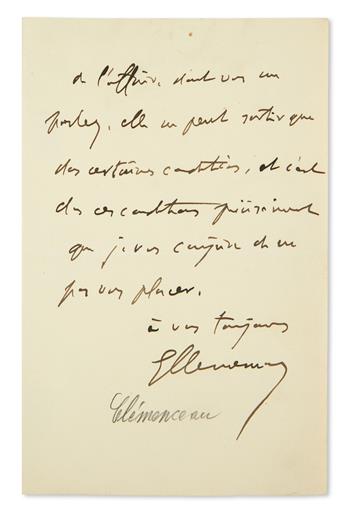 de l'affaire, dont vous me
parlez, elle ne peut sortir que
des certaines conditions, et c'est
des ces conditions précisément
que je vous conjure de ne
pas vous placer.
à vous toujours
GClemenceau
Clémenceau